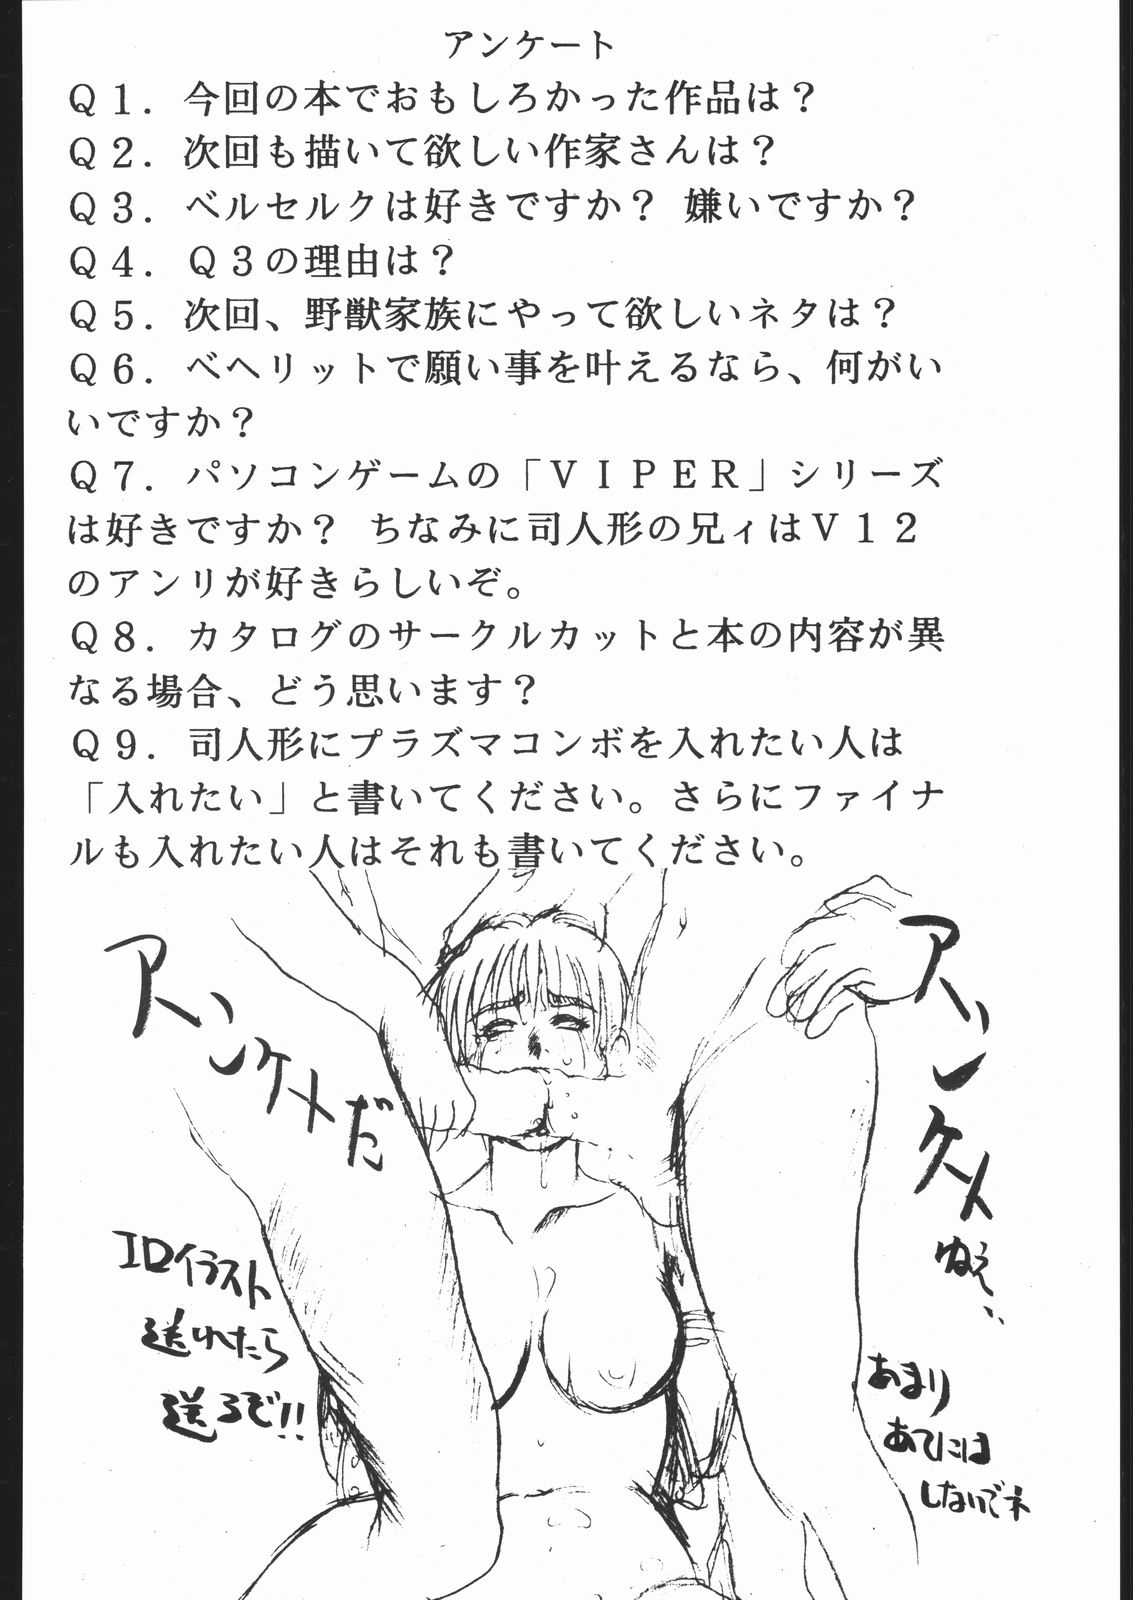 アンケート
Ｑ１．今回の本でおもしろかった作品は？
Ｑ２．次回も描いて欲しい作家さんは？
Ｑ３．ベルセルクは好きですか？ 嫌いですか？
Ｑ４．Ｑ３の理由は？
Ｑ５．次回、野獣家族にやって欲しいネタは？
Ｑ６．ベヘリットで願い事を叶えるなら、何がい
いですか？
Ｑ７．パソコンゲームの「ＶＩＰＥＲ」シリーズ
は好きですか？ ちなみに司人形の兄ィはＶ１２
のアンリが好きらしいぞ。
Ｑ８．カタログのサークルカットと本の内容が異
なる場合、どう思います？
Ｑ９．司人形にプラズマコンボを入れたい人は
「入れたい」と書いてください。さらにファイナ
ルも入れたい人はそれも書いてください。
アンケメだ
アンケメ
ねぇ、、
イラスト
送れたら
送るぞ!!
あまり
あてには
しないでネ